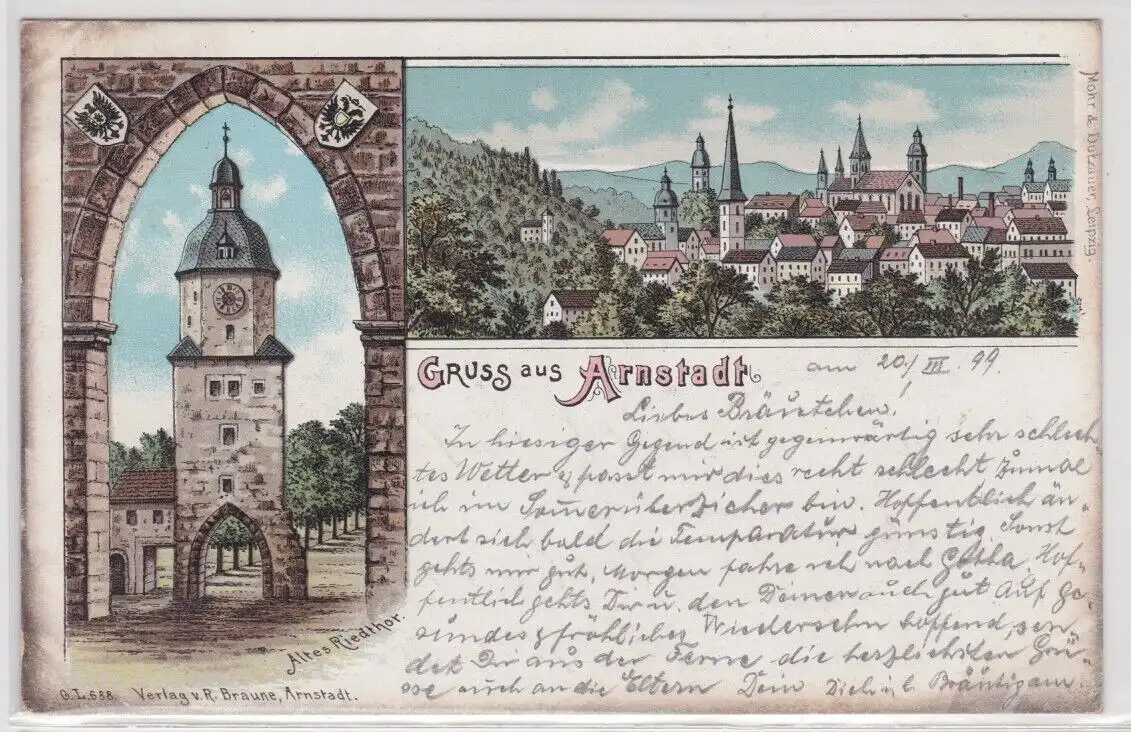 Mohr & Dutzauer, Leipzig.
Gruss aus Arnstadt
am 20./III. 99.
Liebes Bräutchen!
In hiesiger Gegend ist gegenwärtig sehr schlech-
tes Wetter & passt mir dies recht schlecht zumal
ich im Somerüberzieher bin. Hoffentlich än-
dert sich bald die Temparatur günstig. Sonst
gehts mir gut, Morgen fahre ich nach Gotha. Hof-
fentlich gehts Dir u. den Deinen auch gut Auf ge-
sundes & fröhliches Wiedersehn hoffend, sen
det Dir aus der Ferne die herzlichsten Grü-
sse auch an die Eltern Dein Dich Bräutigam.
Altes Riedthor.
O.L.688. Verlag v. R. Braune, Arnstadt.